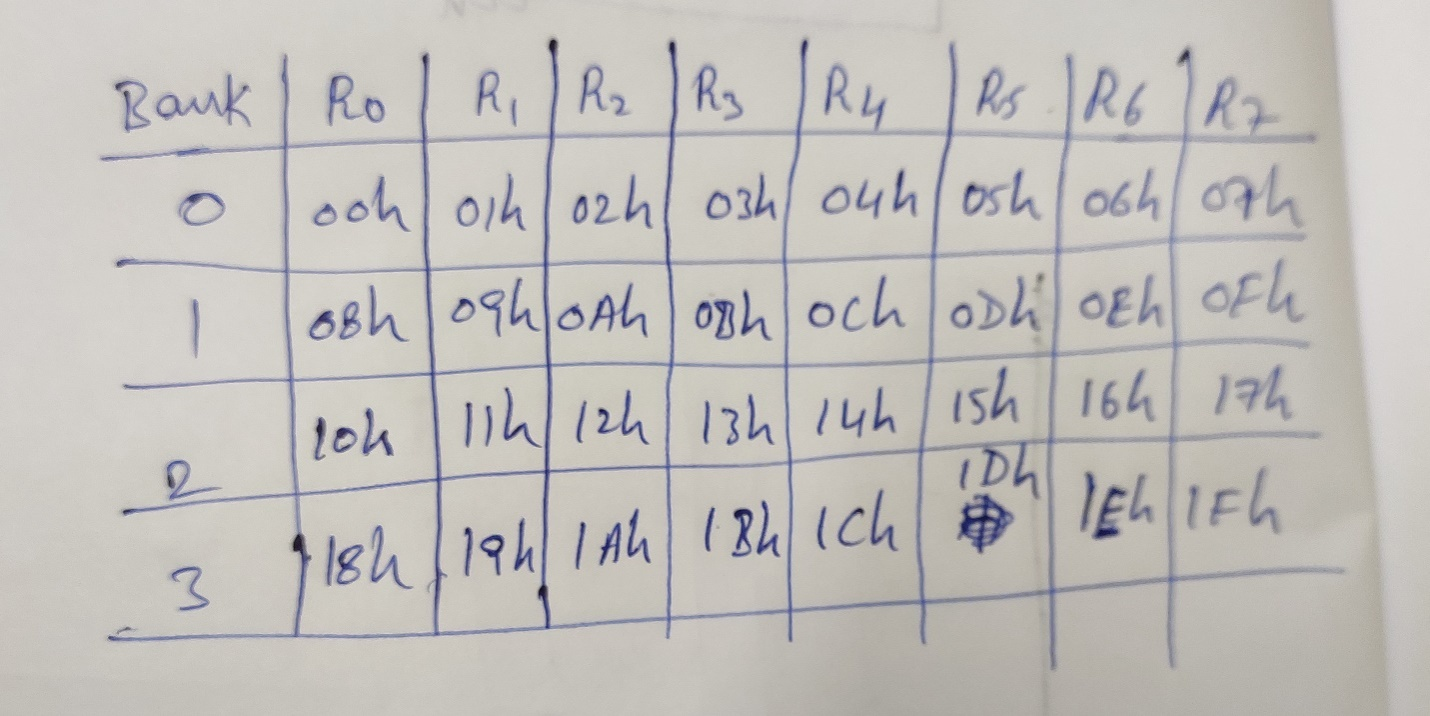 Bank R0 R1 R2 R3 R4 R5 R6 R7
0 00h 01h 02h 03h 04h 05h 06h 07h
1 08h 09h 0Ah 0Bh 0Ch 0Dh 0Eh 0Fh
2 10h 11h 12h 13h 14h 15h 16h 17h
3 18h 19h 1Ah 1Bh 1Ch 1Dh 1Eh 1Fh